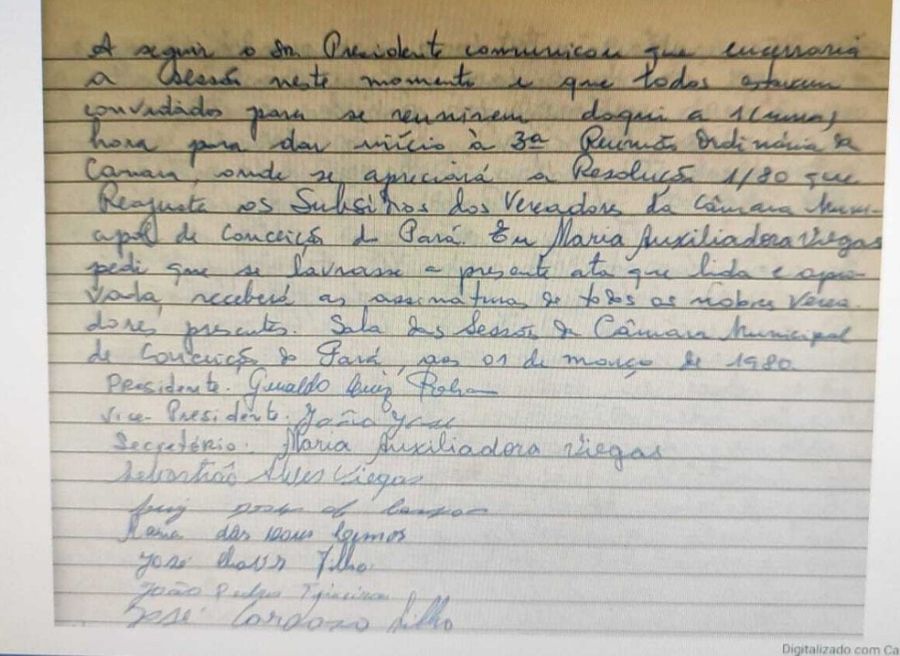 A seguir o Sr. Presidente comunicou que encerraria
a sessão neste momento e que todos estavam
convidados para se reunirem daqui a 1(uma)
hora para dar início à 3ª Reunião Ordinária da
Câmara, onde se apreciará a Resolução 1/80 que
Reajusta os Subsídios dos Vereadores da Câmara Muni-
cipal de Conceição do Pará. Eu Maria Auxiliadora Viegas
pedi que se lavrasse a presente ata que lida e apro-
vada, receberá as assinaturas de todos os nobres Verea-
dores presentes. Sala das Sessões da Câmara Municipal
de Conceição do Pará, aos 01 de março de 1980.
Presidente. Geraldo Luiz
Vice-Presidente. João José
Secretário. Maria Auxiliadora Viegas
Sebastião Alves Viegas
Maria das Lemos
José Chaves Filho.
João Pedro Teixeira
José Cardoso Filho
Digitalizado com Ca